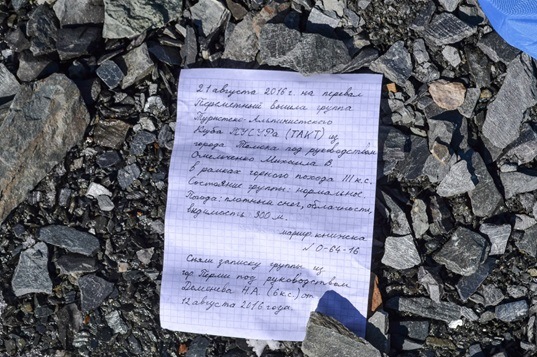 21 августа 2016 г. на перевал
Переменный вышла группа
Туристско Альпинистского
Клуба ТУСУРа (ТАКТ) из
города Томска под руководством
Омельченко Михаила В.
в рамках горного похода III к.с.
Состояние группы: нормальное.
Погода: плотный снег, облачность,
видимость: 300 м.
маршр. книжка
№ 0-64-16
Сняли записку группы из
гор. Перми под руководством
Деменева Н.А. (6 к.с.) от
12 августа 2016 года.